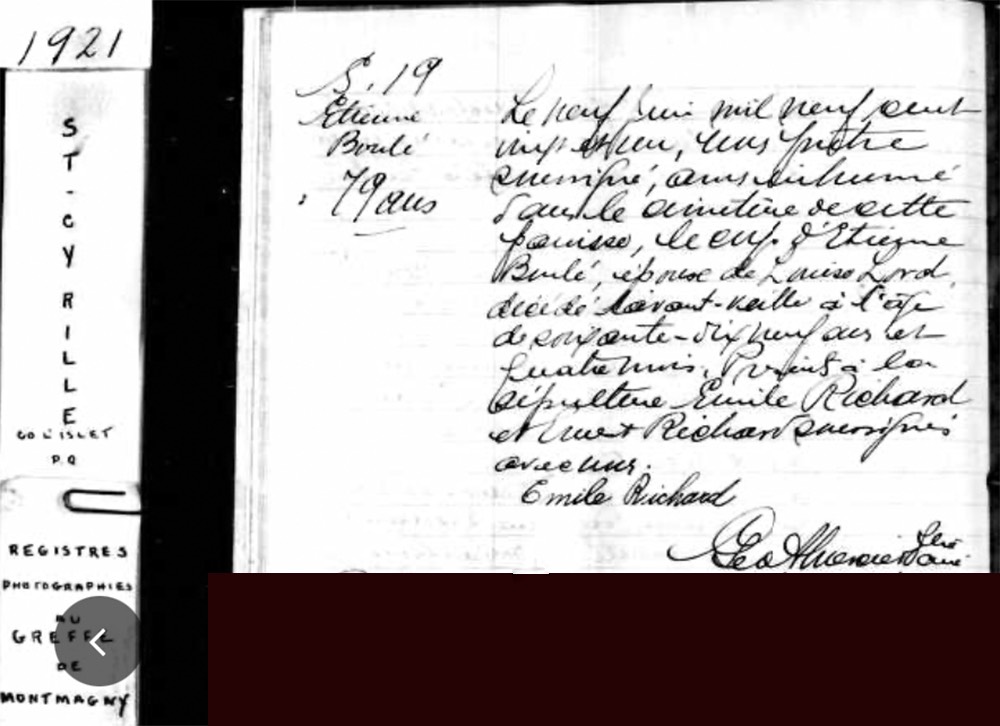 1921
ST-CYRILLE
CO L'ISLET
P.Q
REGISTRES
PHOTOGRAPHIES
AU
GREFFE
DE
MONTMAGNY
S. 19
Etienne
Boulé
79 ans
Le neuf juin mil neuf cent
vingt et un, nous prêtre
soussigné, avons inhumé
dans le cimetière de cette
paroisse, le corps d'Etienne
Boulé, époux de Louise Lord
décédé l'avant-veille à l'âge
de soixante-dix neuf ans et
quatre mois. Présents à la
sépulture Emile Richard
et Richard soussignés
avec nous.
Emile Richard
Geo